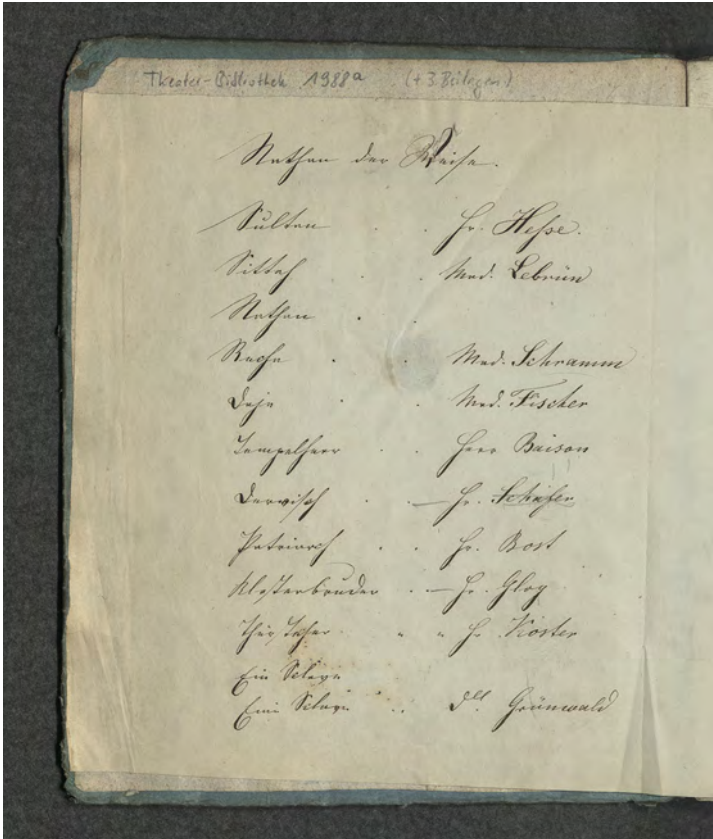 Theater-Bibliothek 1988a (+ 3 Beilagen)
Nathan der Weise.
Sultan . . Hr. Hesse.
Sittah . . Mad. Lebrün
Nathan . .
Recha . . Mad. Schramm
Daja . . Mad. Fischer
Tempelherr . . Herr Baison
Derwisch . . — Hr. Schäfer
Patriarch . . Hr. Bost
Klosterbruder . — Hr. Gloy
Hr. Koster
Ein Sclave
Eine Sclavin . . Dlle. Grünwald